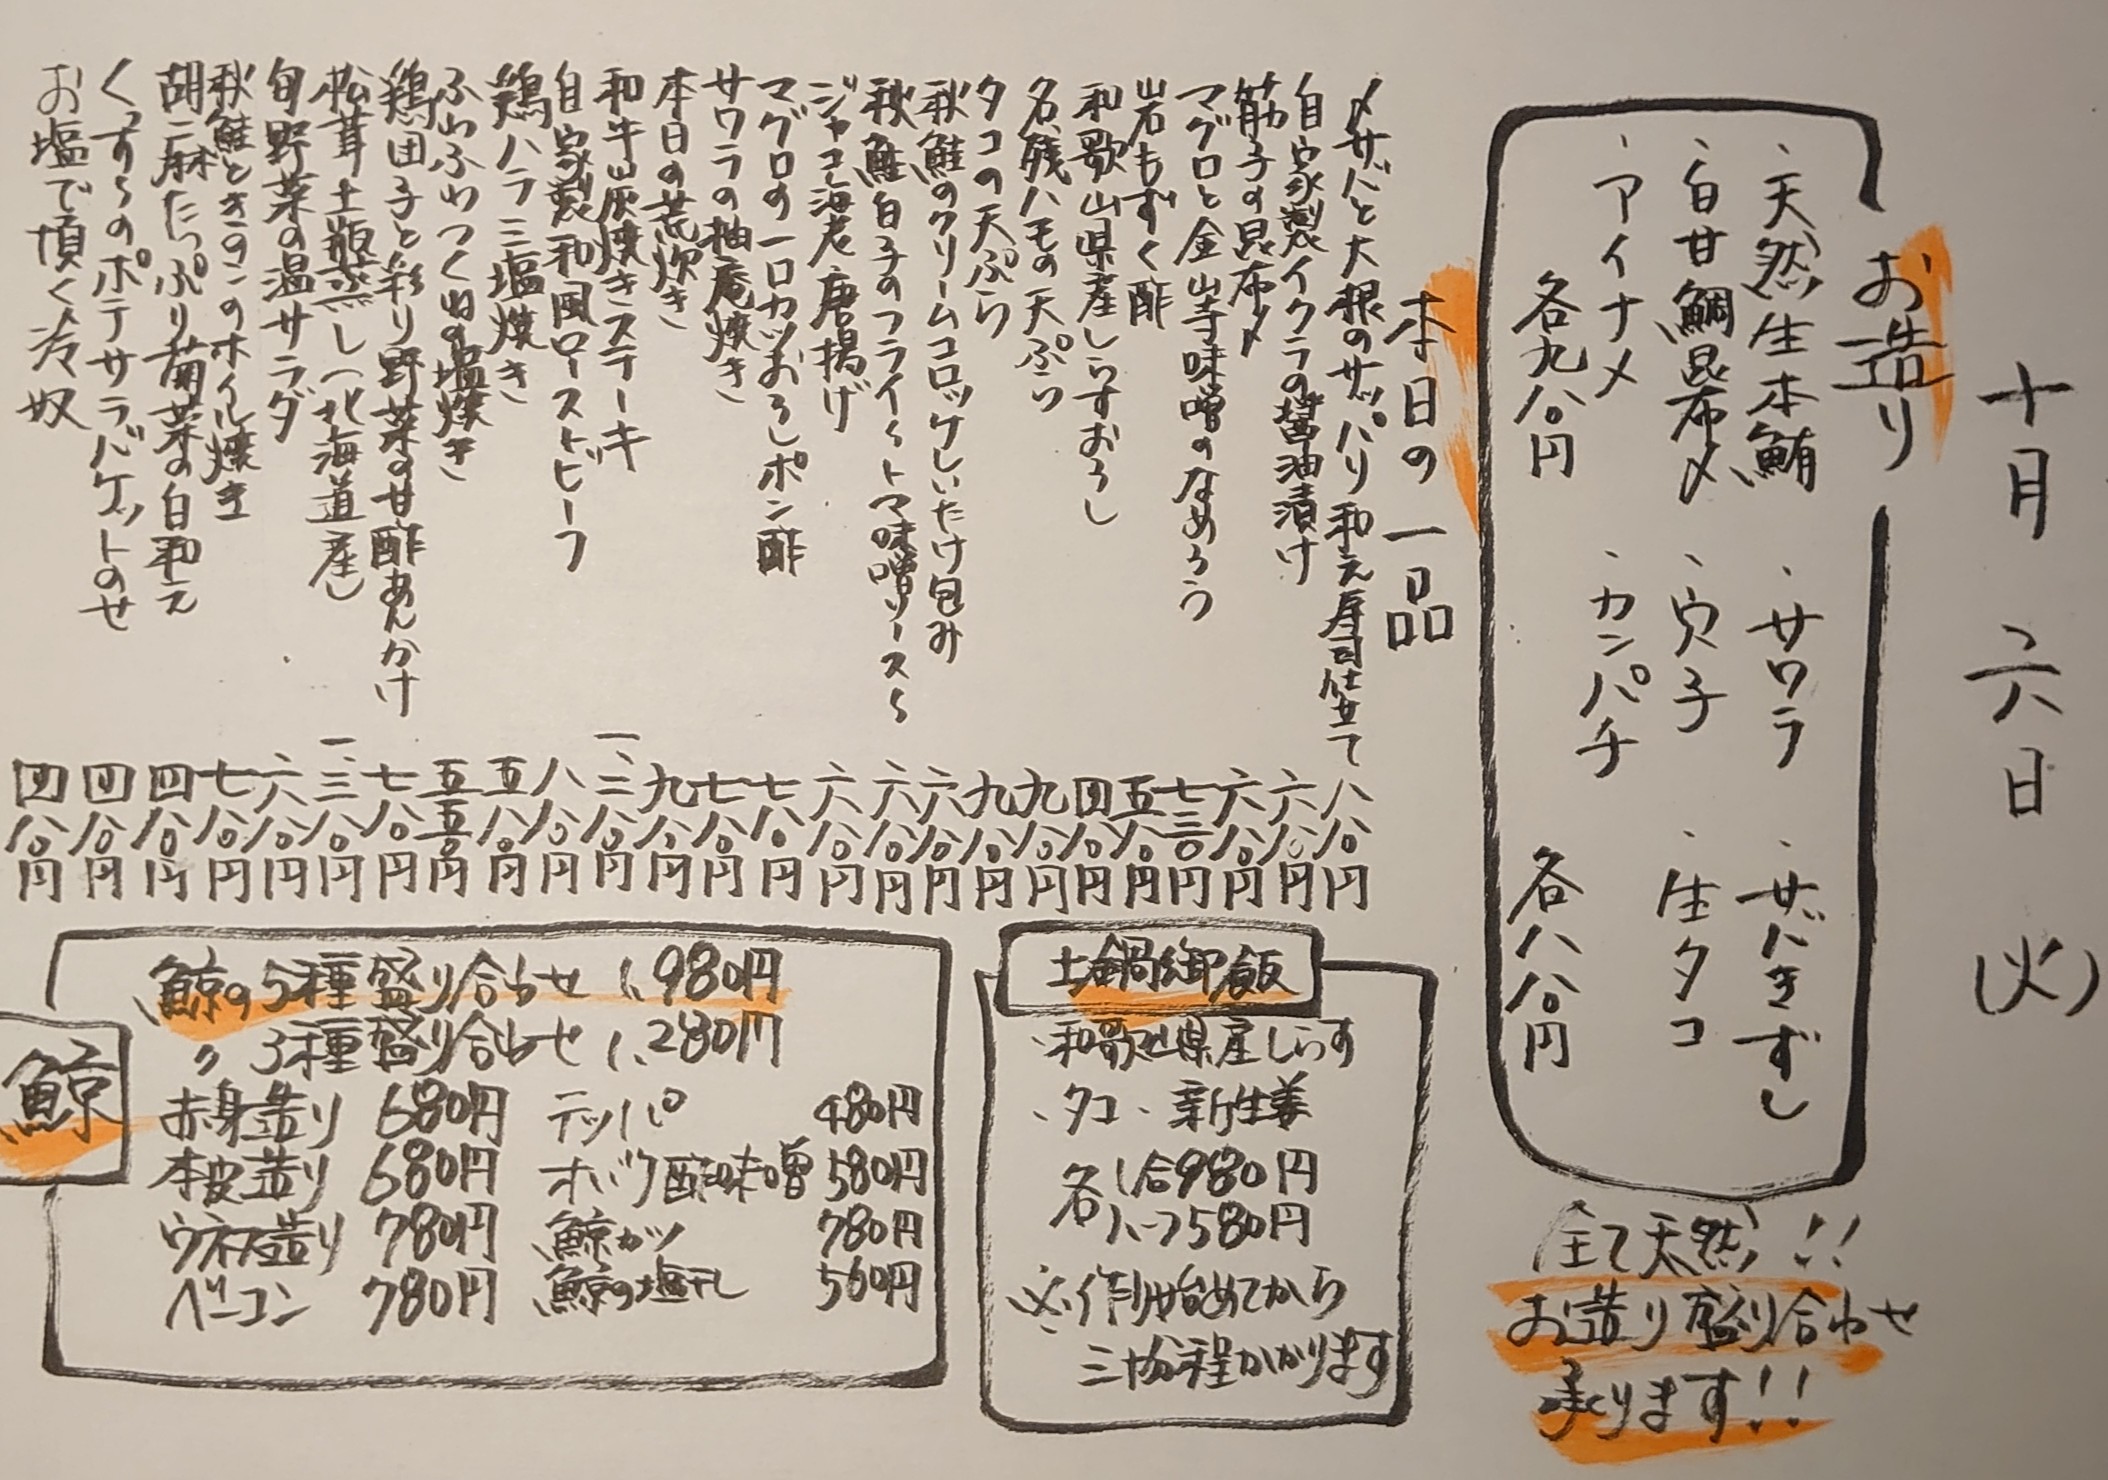 十月六日(火)
お造り
・天然生本鮪 ・サワラ ・サバきずし
・白甘鯛昆布〆 ・穴子 ・生タコ
・アイナメ ・カンパチ
各九八〇円 各八八〇円
全て天然!!
お造り盛り合わせ
承ります!!
本日の一品
〆サバと大根のサッパリ和え寿司仕立て 八八〇円
自家製イクラの醤油漬け 六八〇円
筋子の昆布〆 六八〇円
マグロと金山寺味噌のなめろう 七三〇円
岩もずく酢 五八〇円
和歌山県産しらすおろし 四八〇円
名残ハモの天ぷら 九八〇円
タコの天ぷら 九八〇円
秋鮭のクリームコロッケしいたけ包み 六八〇円
秋鮭白子のフライ〜トマ味噌ソース〜 六八〇円
ジャコ海老唐揚げ 六八〇円
マグロの一口カツおろしポン酢 七八〇円
サワラの柚庵焼き 七八〇円
本日の荒炊き 九八〇円
和牛山灰焼きステーキ 一、三八〇円
自家製和風ローストビーフ 八八〇円
鶏ハラミ塩焼き 五八〇円
ふわふわつくねの塩焼き 五五〇円
鶏団子と彩り野菜の甘酢あんかけ 七八〇円
松茸土瓶蒸し(北海道産) 一、三八〇円
旬野菜の温サラダ 六八〇円
秋鮭ときのこのホイル焼き 七八〇円
胡麻たっぷり菊菜の白和え 四八〇円
くっすらのポテサラバゲットのせ 四八〇円
お塩で頂く冷奴 四八〇円
土鍋御飯
・和歌山県産しらす
・タコ・新生姜
各 1合980円
ハーフ580円
※作り始めてから
三十分程かかります
鯨
鯨の5種盛り合わせ 1,980円
〃 3種盛り合わせ 1,280円
赤身造り 680円 テッパ 480円
本皮造り 680円 オバケ酢味噌 580円
ウネス造り 780円 鯨カツ 780円
ベーコン 780円 鯨の塩干し 560円